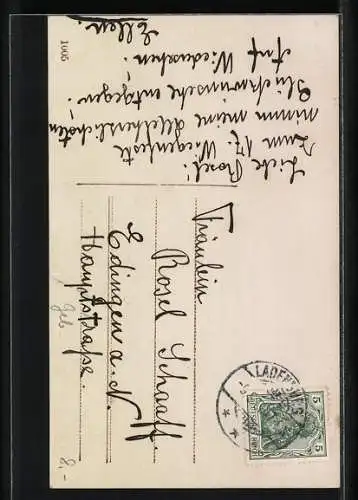 Liebe Rosel!
Zum 17. Wiegenfeste
nimm meine Allerherzlichsten
Glückwünsche entgegen.
Auf Wiedersehen!
Ellen.
1005
Fräulein
Rosel Schaaff.
Edingen a. N.
Hauptstraße.
8,-
LADENBURG
5 5